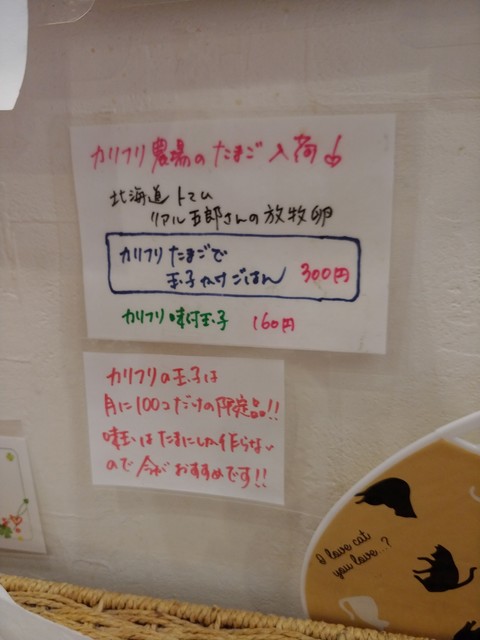 カリフリ農場のたまご入荷
北海道トマム
リアル五郎さんの放牧卵
カリフリたまごで
玉子かけごはん 300円
カリフリ味付玉子 160円
カリフリの玉子は
月に100コだけの限定品!!
味玉はたまにしか作らない
ので今がおすすめです!!
I love cat
you love..?